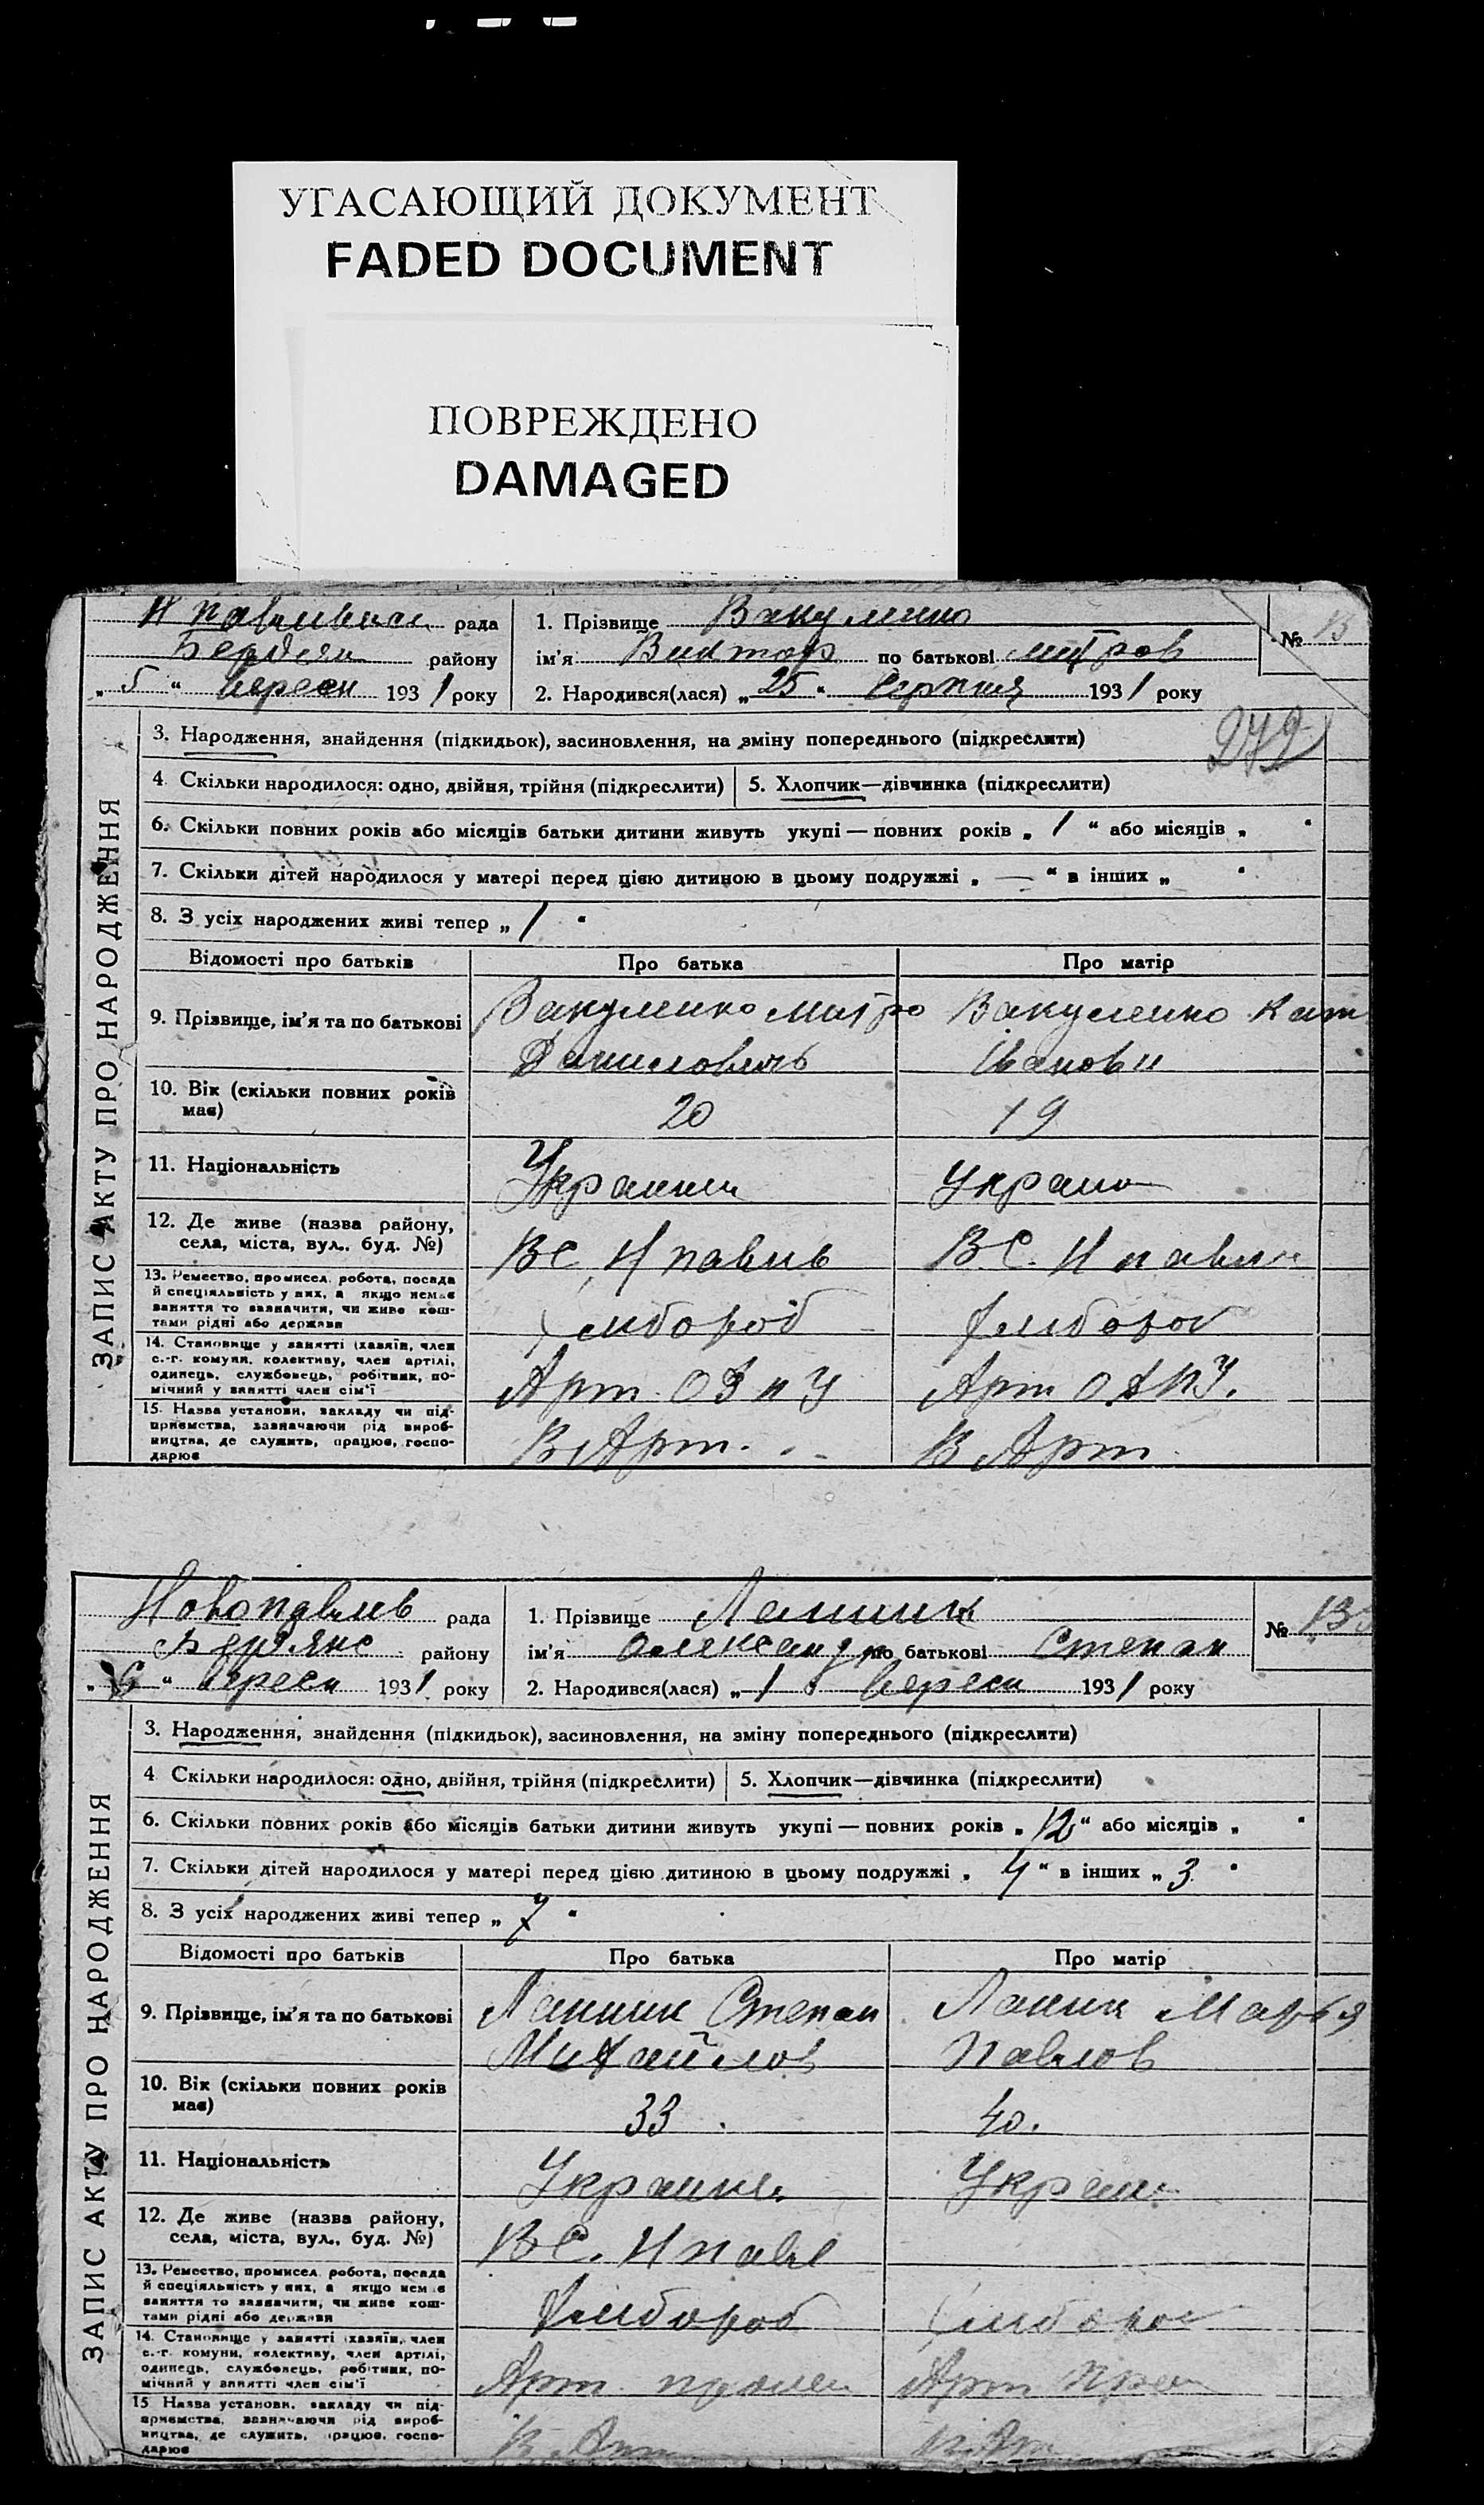 УГАСАЮЩИЙ ДОКУМЕНТ
FADED DOCUMENT
ПОВРЕЖДЕНО
DAMAGED
рада
району
„ 5 “ вересн 1931 року
1. Прізвище Вакуленко
ім'я Виктор по батькові митров
2. Народився(лася) „ 25 “ Серпня 1931 року
№ 13
279
ЗАПИС АКТУ ПРО НАРОДЖЕННЯ
3. Народження, знайдення (підкидьок), засиновлення, на зміну попереднього (підкреслити)
4 Скільки народилося: одно, двійня, трійня (підкреслити) 5. Хлопчик—дівчинка (підкреслити)
6. Скільки повних років або місяців батьки дитини живуть укупі — повних років „ 1 “ або місяців „ “
7. Скільки дітей народилося у матері перед цією дитиною в цьому подружжі „ — “ в інших „ “
8. З усіх народжених живі тепер „ 1 “
Відомості про батьків Про батька Про матір
9. Прізвище, ім'я та по батькові Вакуленко Митро Вакуленко Кат
Данилович Іванови
10. Вік (скільки повних років має) 20 19
11. Національність Украинец Украин
12. Де живе (назва району, села, міста, вул., буд. №) ВС. Н павлів В.С. Н павли
13. Ремество, промисел, робота, посада й спеціяльність у них, а якщо немає заняття то зазначити, чи живе коштами рідні або держави Хлібороб Хлібороб
14. Становище у занятті (хазяїн, член с.-г. комуни, колективу, член артілі, одинець, службовець, робітник, помічний у занятті член сім'ї Арт. ОДПУ Арт ОДПУ.
15. Назва установи, закладу чи підприємства, зазначаючи рід виробництва, де служить, працює, господарює В Арт. В Арт
Новопавлів рада
Бердянс району
„ 6 “ вересн 1931 року
1. Прізвище Ланник
ім'я Олександ по батькові Степан
2. Народився(лася) „ 1 “ Вересн 1931 року
№ 133
ЗАПИС АКТУ ПРО НАРОДЖЕННЯ
3. Народження, знайдення (підкидьок), засиновлення, на зміну попереднього (підкреслити)
4 Скільки народилося: одно, двійня, трійня (підкреслити) 5. Хлопчик—дівчинка (підкреслити)
6. Скільки повних років або місяців батьки дитини живуть укупі — повних років „ 12 “ або місяців „ “
7. Скільки дітей народилося у матері перед цією дитиною в цьому подружжі „ 4 “ в інших „ 3 “
8. З усіх народжених живі тепер „ 7 “
Відомості про батьків Про батька Про матір
9. Прізвище, ім'я та по батькові Ланник Степан Ланник Марья
Михайлов Павлов
10. Вік (скільки повних років має) 33 40.
11. Національність Украине Украин
12. Де живе (назва району, села, міста, вул., буд. №) ВС. Н павл
13. Ремество, промисел, робота, посада й спеціяльність у них, а якщо немає заняття то зазначити, чи живе коштами рідні або держави Хлібороб Хлібороб
14. Становище у занятті (хазяїн, член с.-г. комуни, колективу, член артілі, одинець, службовець, робітник, помічний у занятті член сім'ї Арт. Арт
15 Назва установи, закладу чи підприємства, зазначаючи рід виробництва, де служить, працює, господарює В Арт В Арт